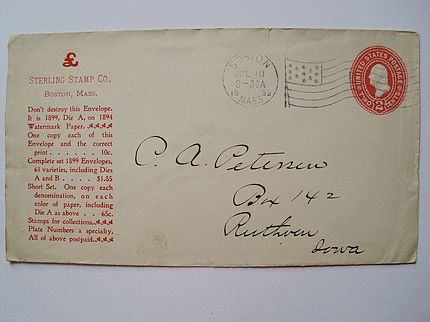 £
STERLING STAMP CO.,
BOSTON, MASS.
Don't destroy this Envelope.
It is 1899, Die A, on 1894
Watermark Paper.
One copy each of this
Envelope and the correct
print . . . . . . 10c.
Complete set 1899 Envelopes,
61 varieties, including Dies
A and B . . . . . $1.85
Short Set. One copy each
denomination, on each
color of paper, including
Die A as above . . 65c.
Stamps for collections.
Plate Numbers a specialty.
All of above postpaid.
BOSTON
JUL 10
MASS.
UNITED STATES POSTAGE
TWO CENTS
2
C. A. Petersen
Box 142
Ruthven
Iowa